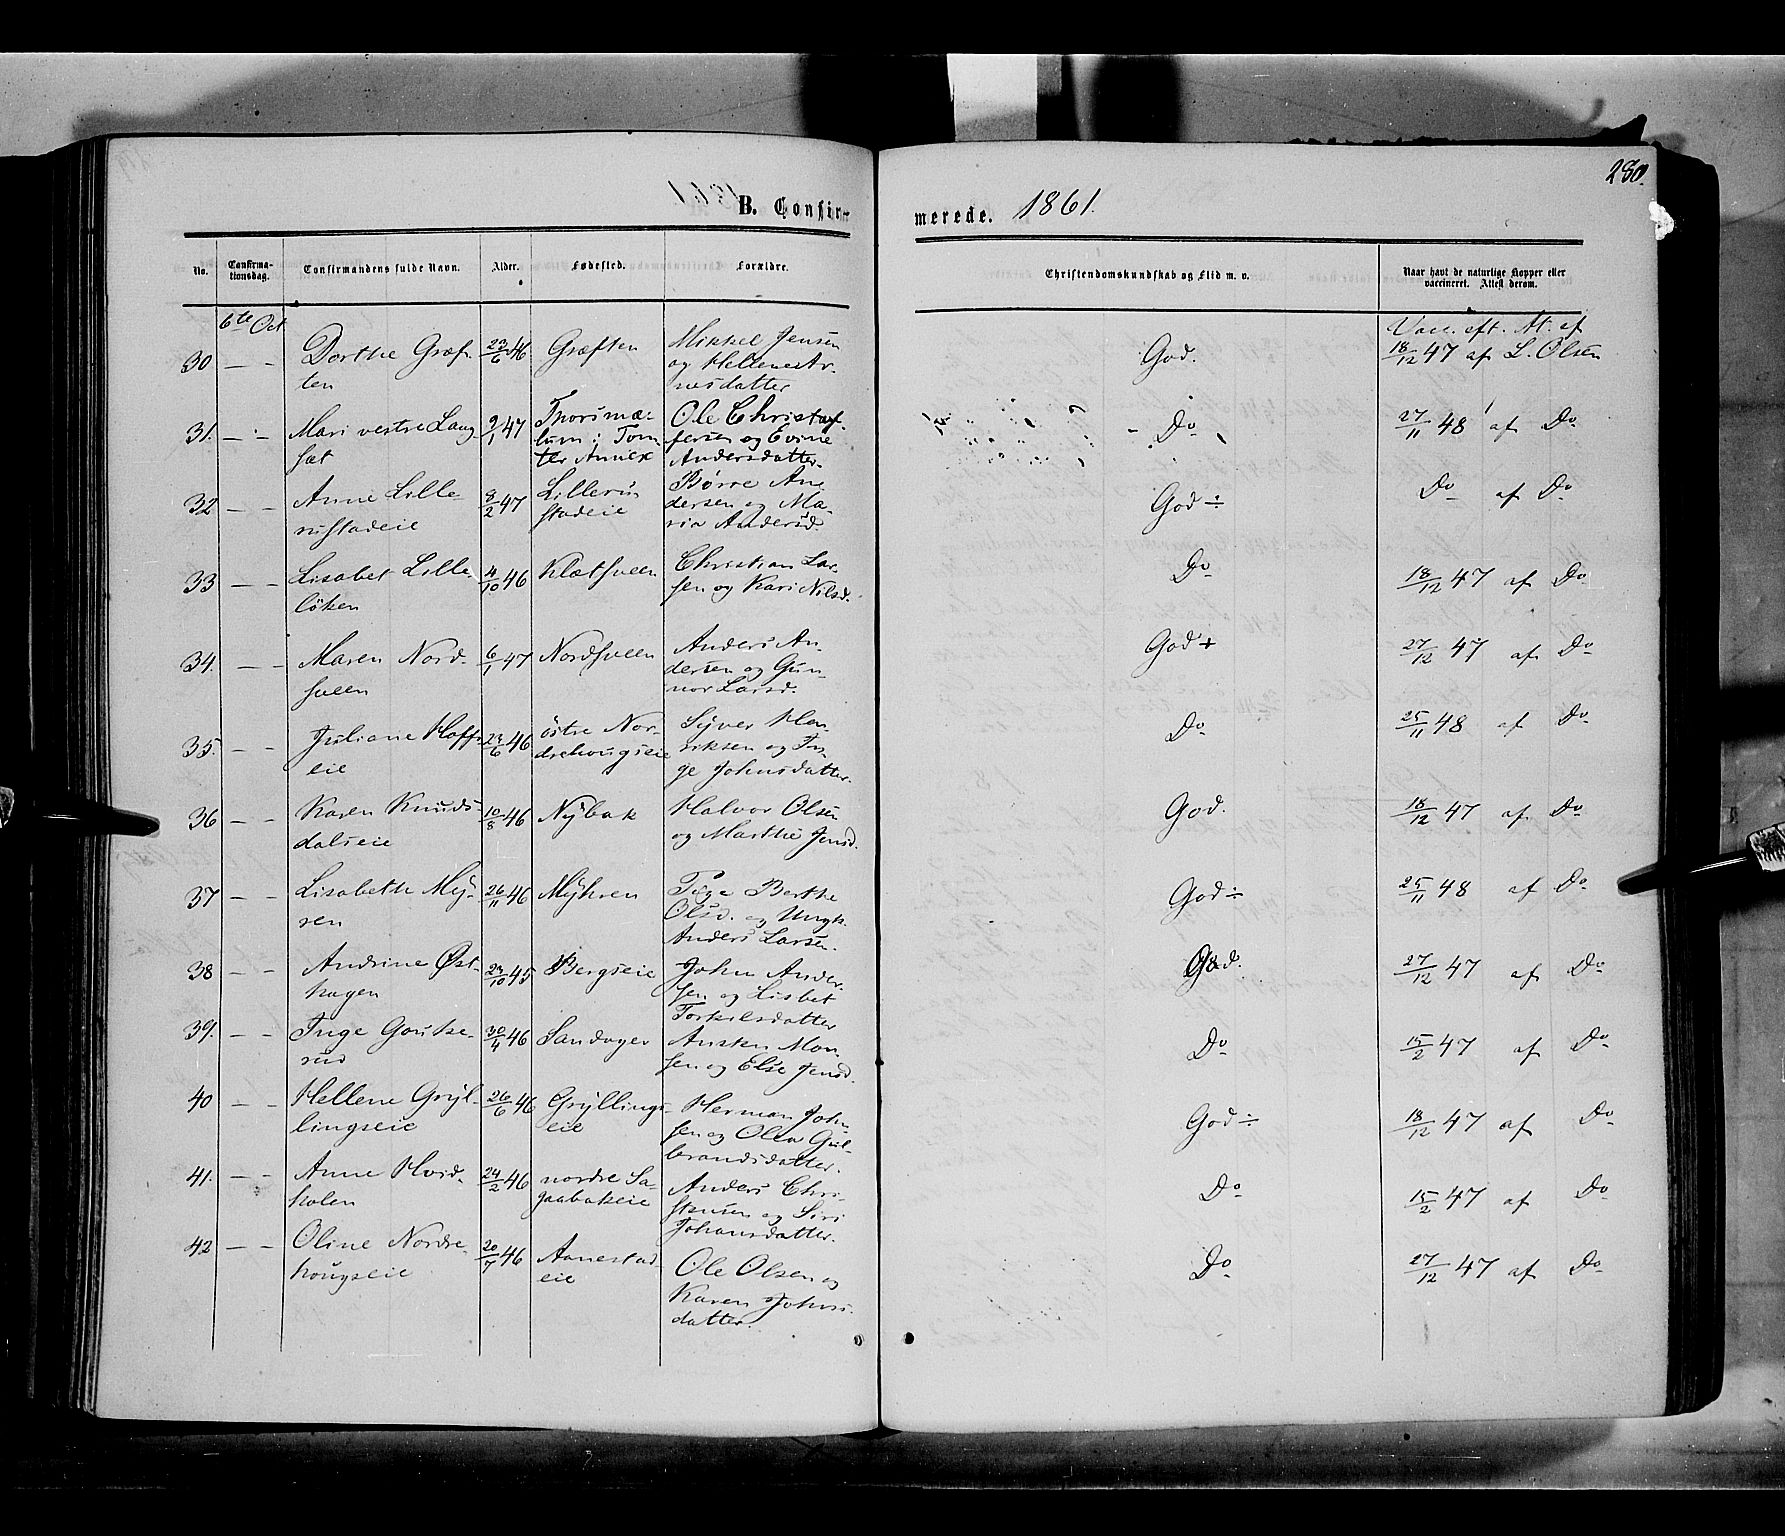 280.
B. Confir-
merede. 1861.
No.
Confirma-
tionsdag.
Confirmandens fulde Navn.
Alder.
Fødested.
Forældre.
Christendomskundskab og Flid m. v.
Naar havt de naturlige Kopper eller
vaccineret. Attest derom.
6te Oct
30 — — Dorthe Græf-
ten
23/6 46
Græften
Mikkel Jensen
og Hellene Ar-
nesdatter
God.
Vacc. eft. At. af
18/12 47 af L. Olsen
31. — — Mari vestre Lang
sæt
9/1 47
Thorsmæ-
lum i Tom
ter Annex
Ole Christof-
fersen og Evine
Andersdatter.
Do
27/11 48 af Do
32 — — Anne Lille-
rustadeie
8/2 47
Lilleru
stadeie
Børre An-
dersen og Ma-
ria Andersd.
God ÷
Do af Do
33 — — Lisabet Lille-
löken
4/10 46
Klætsveen
Christian Lar-
sen og Kari Nilsd.
Do
18/12 47 af Do
34. — — Maren Nord-
sveen
6/1 47
Nordsveen
Anders An-
dersen og Gun-
nor Larsd.
God +
27/12 47 af Do
35. — — Juliane Hoffs
eie
23/6 46
östre Nor-
drehougseie
Syver Hen-
riksen og In-
ge Johnsdatter.
Do
25/11 48 af Do
36 — — Karen Knuds-
dalseie
10/8 46
Nybak
Halvor Olsen
og Marthe Jensd.
God.
18/12 47 af Do
37 — — Lisabethe My-
ren
26/11 46
Myhren
Pige Berthe
Olsd. og Ungk.
Anders Larsen.
God ÷
25/11 48 af Do
38 — — Andrine Øst-
hagen
23/10 45
Bergseie
John Ander-
sen og Lisbet
Torkilsdatter
God.
27/12 47 af Do
39. — — Inge Goutke-
rud
30/4 46
Sandager
Ansten Mon-
sen og Else Jensd.
Do
15/2 47 af Do
40 — — Hellene Gryl-
lingseie
26/6 46
Gryllings-
eie
Herman Joh-
sen og Olea Gul-
brandsdatter.
God ÷
18/12 47 af Do
41. — — Anne Hvid-
kolen
24/2 46
nordre Sa-
gaabakeie
Anders Chri-
stensen og Siri
Johansdatter.
Do
15/2 47 af Do
42 — — Oline Nordre-
hougseie
20/7 46
Aanestad-
eie
Ole Olsen og
Karen Johns-
datter.
Do
27/12 47 af Do